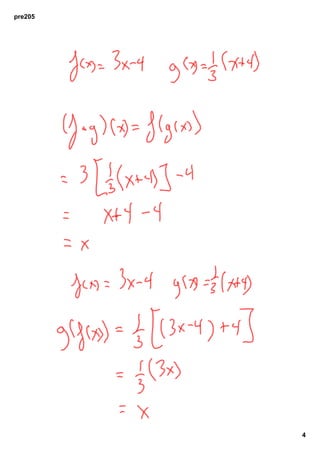 pre205
f(x)= 3x-4 g(x)=1/3(x+4)
(f∘g)(x)= f(g(x))
= 3[1/3(x+4)]-4
= x+4-4
= x
f(x)= 3x-4 g(x)=1/3(x+4)
g(f(x))= 1/3[(3x-4)+4]
= 1/3(3x)
= x
4